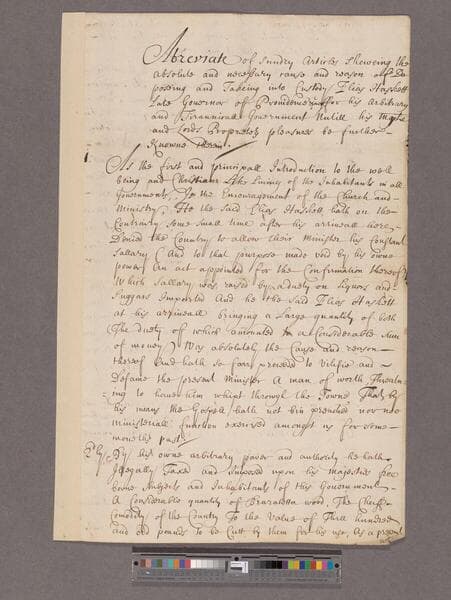 Abreviate of sundry Articles sheweing the
absolute and necessary cause and reason of De
posing and Takeing into Custody Elias Haskett
Late Governor of Providence for his Arbitrary
and Tirannicall Government Untill his Majties
and Lords Proprietors pleasures be further
Knowne
As the first and principall Introduction to the well
being and Christian Like Liveing of the Inhabitants in all
Governments, Is the Encouragement of the Church and
Ministry, He the said Elias Haskett hath on the
Contrary some small time after his arriveall here
Denied the Country to allow their Minister his Constant
Sallary And to that purpose made void by his owne
power An act appointed for the Confirmation thereof
Which Sallary was raised by a duety on Liquors and
Suggars Imported And he the said Elias Haskett
at his arriveall bringing a Large quantity of both
The duety of which amounted to a Considerable Sum
of money Was absolutely the Cause and reason
thereof And hath so farr proceeded to Vilifie and
Defame the present Minister A man of worth Threatn
ing to have him whipt through the Towne That by
his means the Gospell hath not bin preached nor no
ministeriall function exercised amongst us for some
months past
2ly By his owne arbitrary power and authority he hath
Illegally Taxt and Imposed upon his majesties free
borne Subjects and Inhabitants of this Government
A Considerable quantity of Brazaletta wood The Cheiff
Comodity of the Country To the Value of Three hundred
and odd pounds to be Cutt by them for his use, As a present